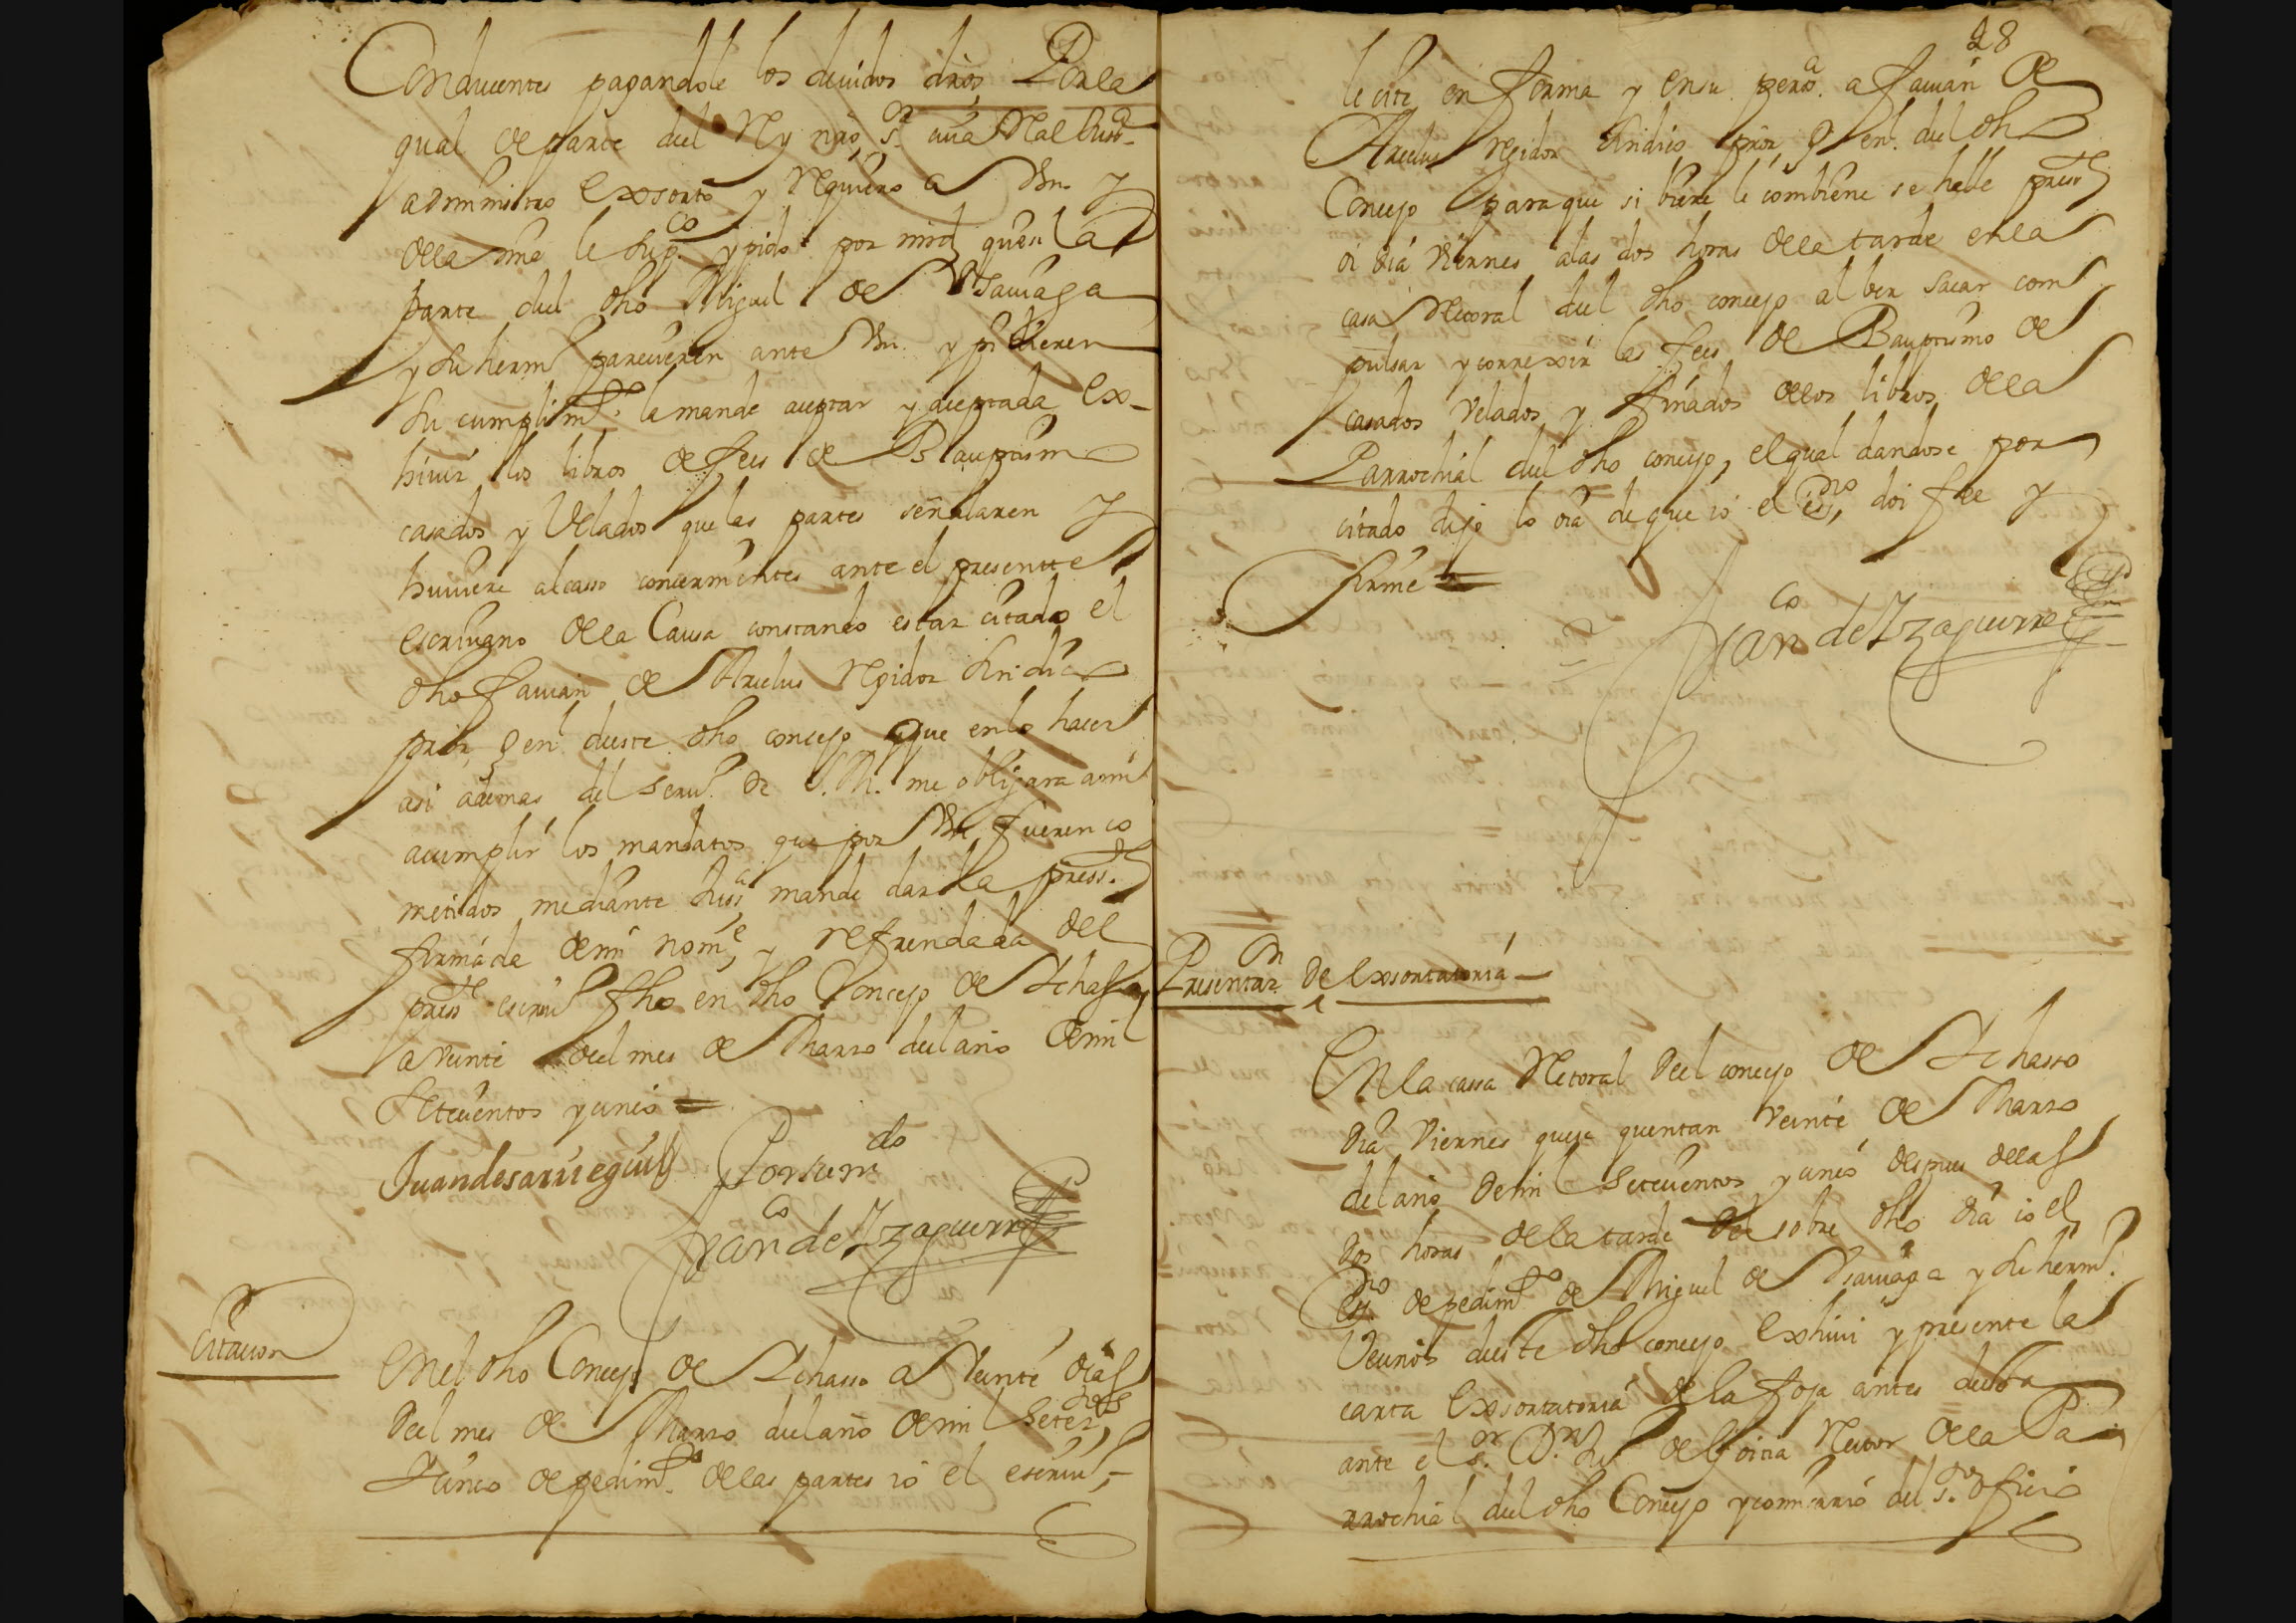 Conducentes pagandole los devidos dros Por la
qual de parte del Rey nro s.or cuia Real Jusd.
administro exsorto y requiero a Vm. y
de la mia le sup.co y pido por mrd que si la
parte del dho Miguel de Ysasaga
y su herm.o parecieren ante Vm. y pidieren
su cumplim.to la mande aceptar y aceptada ex-
hivir los libros de fees de Bauptismo
casados y Velados que las partes señalaren y
huviere al casso concernientes ante el presentte
escrivano de la Causa constando estar citado el
dho Fauian de Arelus Regidor sindico
pror. gen.l deeste dho concejo que en lo hacer
asi ademas del serv.o de S. M. me obligara a mi
a cumplir los mandatos que por Vm. fueren co
metidos mediante Juss.a mande dar la press.te
firmada de mi nom.e y refrendada del
press.te escriv.o fho en dho Concejo de Ichasso
a veinte del mes de Marzo del año de mil
Setecientos y cinco =
Juan de sarriegui Por su m.do
Fran.co de Yzaguirre
Citacion
En el dho Concejo de Ichasso a Veinte dias
Del mes de Marzo del año de mil Sete.tos
y cinco de pedim.to de las partes io el escriv.o
28
le cite en forma y en su perso.a a Fauian de
Arelus regidor sindico pror. gen.l del dho
Concejo para que si biere le combiene se halle press.te
oi dia Viernes a las dos horas de la tarde en la
casa Rectoral del dho concejo al ber sacar com
pulsar y correxir las fees de Bauptismo de
casados velados y finados de los libros de la
Parrochial del dho concejo, el qual dandose por
citado dijo lo oia de que io el es.no doi fee y
firme =
Fran.co de Yzaguirre
Presentaz.on de exsortatoria
En la cassa Rectoral Del concejo de Ichasso
Dia Viernes que se quentan Veinte de Marzo
del año de mil Setecientos y cinco despues de las
Dos horas de la tarde Del sobre dho dia io el
es.no de pedim.to de Miguel de Ysasaga y su herm.o
Vecinos deeste dho concejo exhivi y presente la
carta exsortatoria de la foja antes de esta
ante el s.or D.n de Goitia Rector de la Pa
rrochial del dho Concejo y comissario del s.to officio